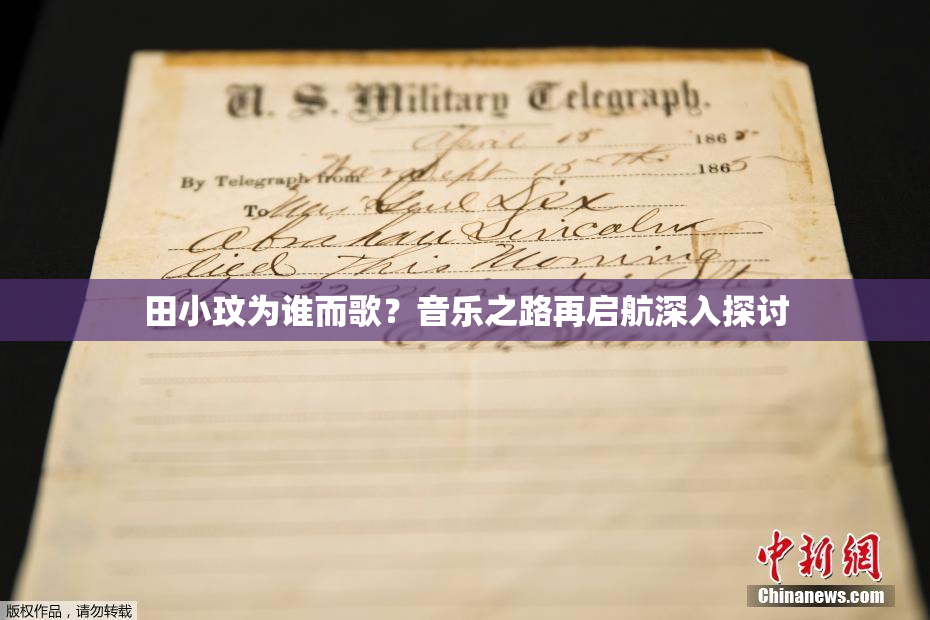 U. S. Military Telegraph.
April 15 1865
By Telegraph from War Dept 15th 1865
To Maj Genl Dix
Abraham Lincoln
died This Morning
22 minutes after
田小玟为谁而歌？音乐之路再启航深入探讨
中新網
Chinanews.com
版权作品，请勿转载